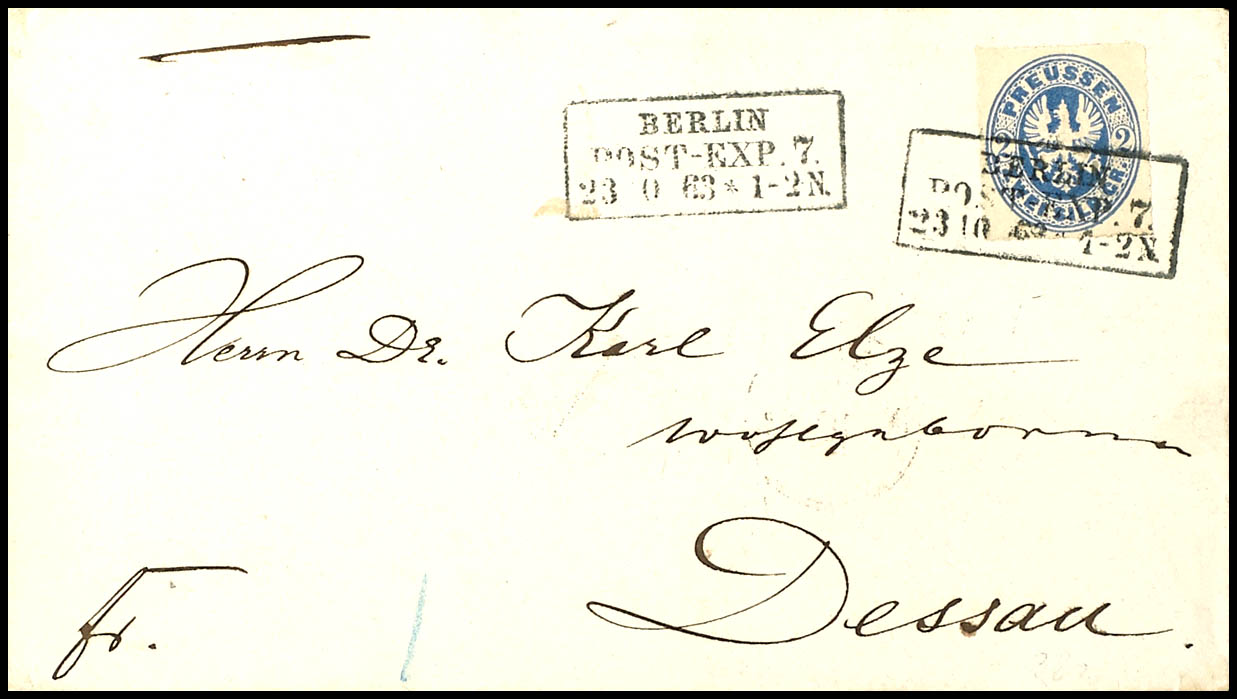 BERLIN
POST-EXP. 7.
23 0 63 * 1-2 N.
PREUSSEN
2 2
ZWEI SILBGR.
BERLIN
POST-EXP. 7.
23 10 63 * 1-2 N
Herrn Dr. Karl Elze
Wohlgeboren
Dessau.
fr.